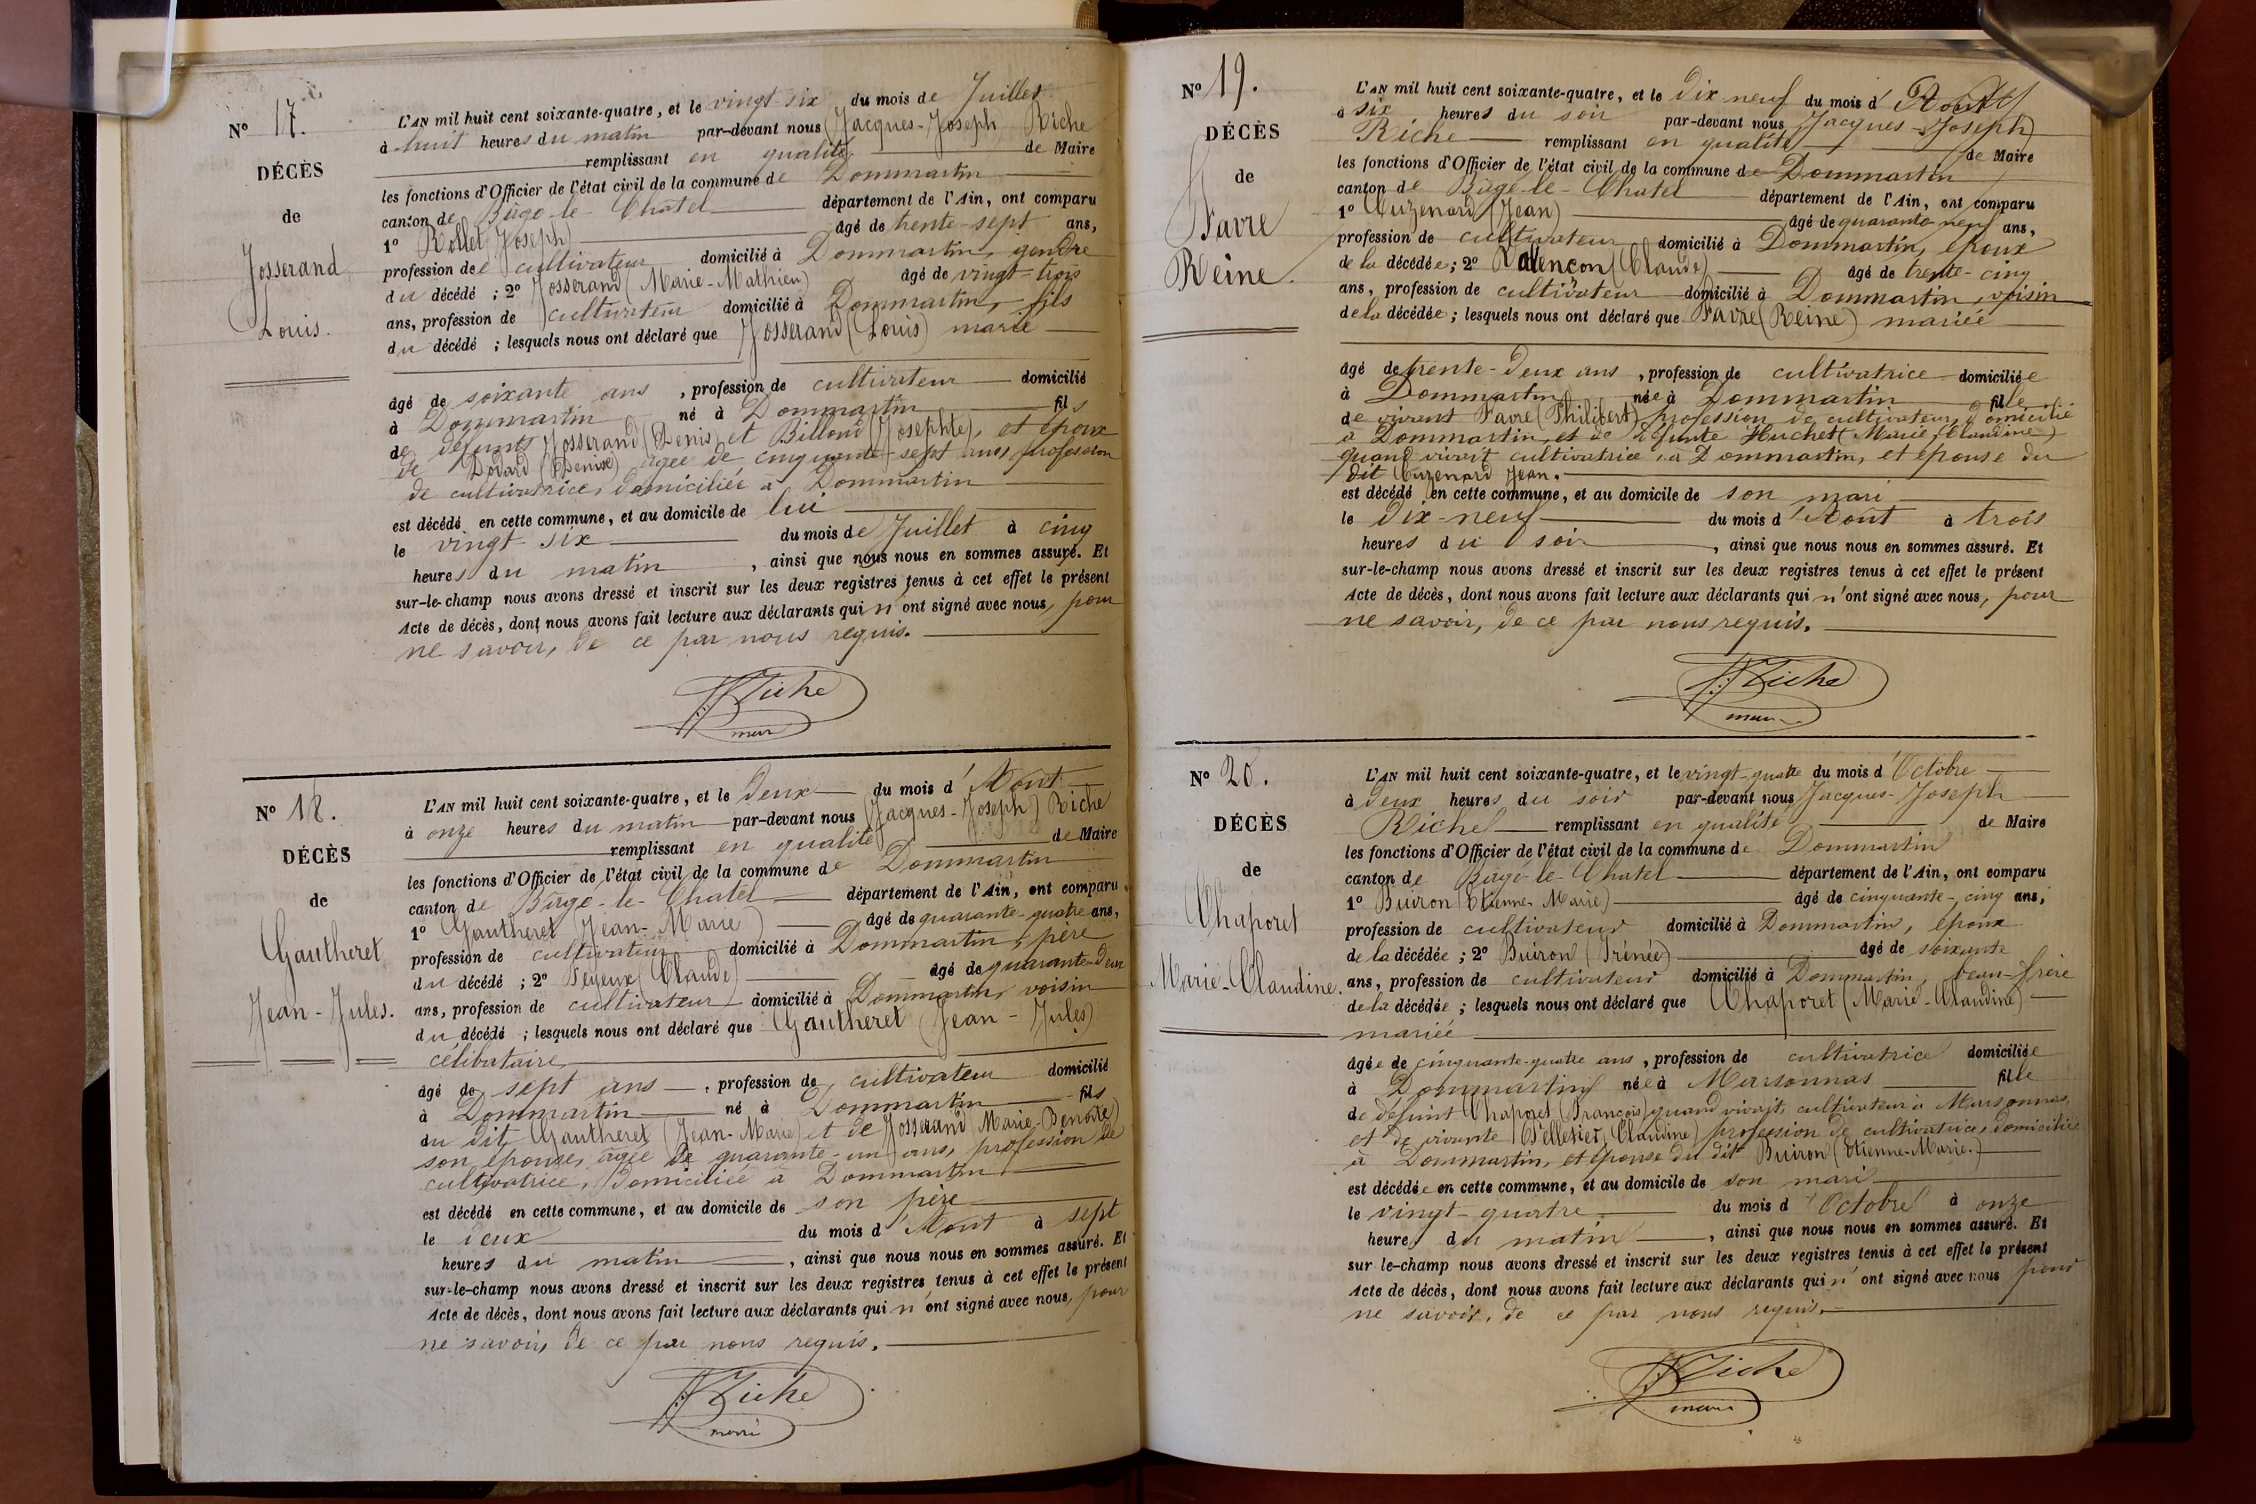 N° 17.
DÉCÈS
de
Josserand
Louis.
L'AN mil huit cent soixante-quatre, et le vingt-six du mois de Juillet
à huit heures du matin par-devant nous Jacques-Joseph Riche
remplissant en qualité de Maire
les fonctions d'Officier de l'état civil de la commune de Dommartin
canton de Bâgé-le-Chatel département de l'Ain, ont comparu
1° Rollet (Joseph) âgé de trente-sept ans,
profession de cultivateur domicilié à Dommartin, gendre
du décédé ; 2° Josserand (Marie-Mathieu) âgé de vingt-trois
ans, profession de cultivateur domicilié à Dommartin, fils
du décédé ; lesquels nous ont déclaré que Josserand (Louis) marié
âgé de soixante ans , profession de cultivateur domicilié
à Dommartin né à Dommartin fils
de défunts Josserand (Denis) et Billoud (Josephte), et époux
de Dodard (Denise) âgée de cinquante-sept ans, profession
de cultivatrice, domiciliée à Dommartin
est décédé en cette commune, et au domicile de lui
le vingt-six du mois de Juillet à cinq
heures du matin , ainsi que nous nous en sommes assuré. Et
sur-le-champ nous avons dressé et inscrit sur les deux registres tenus à cet effet le présent
Acte de décès, dont nous avons fait lecture aux déclarants qui n'ont signé avec nous, pour
ne savoir, de ce par nous requis.
J.J. Riche
maire
N° 18.
DÉCÈS
de
Gautheret
Jean-Jules.
L'AN mil huit cent soixante-quatre, et le deux du mois d'Août
à onze heures du matin par-devant nous Jacques-Joseph Riche
remplissant en qualité de Maire
les fonctions d'Officier de l'état civil de la commune de Dommartin
canton de Bâgé-le-Chatel département de l'Ain, ont comparu
1° Gautheret (Jean-Marie) âgé de quarante-quatre ans,
profession de cultivateur domicilié à Dommartin, père
du décédé ; 2° Feyeux (Claude) âgé de quarante-deux
ans, profession de cultivateur domicilié à Dommartin, voisin
du décédé ; lesquels nous ont déclaré que Gautheret (Jean-Jules)
célibataire
âgé de sept ans , profession de cultivateur domicilié
à Dommartin né à Dommartin fils
du dit Gautheret (Jean-Marie) et de Josserand (Marie-Benoite)
son épouse, âgée de quarante-un ans, profession de
cultivatrice, domiciliée à Dommartin
est décédé en cette commune, et au domicile de son père
le deux du mois d'Août à sept
heures du matin , ainsi que nous nous en sommes assuré. Et
sur-le-champ nous avons dressé et inscrit sur les deux registres tenus à cet effet le présent
Acte de décès, dont nous avons fait lecture aux déclarants qui n'ont signé avec nous, pour
ne savoir, de ce par nous requis.
J.J. Riche
maire
N° 19.
DÉCÈS
de
Favre
Reine.
L'AN mil huit cent soixante-quatre, et le dix neuf du mois d'Août
à six heures du soir par-devant nous Jacques-Joseph
Riche remplissant en qualité de Maire
les fonctions d'Officier de l'état civil de la commune de Dommartin
canton de Bâgé-le-Chatel département de l'Ain, ont comparu
1° Cuzenard (Jean) âgé de quarante-neuf ans,
profession de cultivateur domicilié à Dommartin, époux
de la décédée ; 2° Ralençon (Claude) âgé de trente-cinq
ans, profession de cultivateur domicilié à Dommartin, voisin
de la décédée ; lesquels nous ont déclaré que Favre (Reine) mariée
âgé de trente-deux ans , profession de cultivatrice domiciliée
à Dommartin née à Dommartin fille
de vivant Favre (Philibert) profession de cultivateur, domicilié
à Dommartin, et de défunte Huchet (Marie Claudine)
quand vivait cultivatrice, à Dommartin, et épouse du
dit Cuzenard Jean.
est décédé en cette commune, et au domicile de son mari
le dix-neuf du mois d'Août à trois
heures du soir , ainsi que nous nous en sommes assuré. Et
sur-le-champ nous avons dressé et inscrit sur les deux registres tenus à cet effet le présent
Acte de décès, dont nous avons fait lecture aux déclarants qui n'ont signé avec nous, pour
ne savoir, de ce par nous requis.
J.J. Riche
maire
N° 20.
DÉCÈS
de
Chaporet
Marie-Claudine.
L'AN mil huit cent soixante-quatre, et le vingt-quatre du mois d'Octobre
à deux heures du soir par-devant nous Jacques-Joseph
Riche remplissant en qualité de Maire
les fonctions d'Officier de l'état civil de la commune de Dommartin
canton de Bâgé-le-Chatel département de l'Ain, ont comparu
1° Buiron (Etienne-Marie) âgé de cinquante-cinq ans,
profession de cultivateur domicilié à Dommartin, époux
de la décédée ; 2° Buiron (Irénée) âgé de soixante
ans, profession de cultivateur domicilié à Dommartin, beau-frère
de la décédée ; lesquels nous ont déclaré que Chaporet (Marie-Claudine)
mariée
âgée de cinquante-quatre ans , profession de cultivatrice domiciliée
à Dommartin née à Marsonnas fille
de défunt Chaporet (François) quand vivait, cultivateur à Marsonnas,
et de vivante Pelletier (Claudine) profession de cultivatrice, domiciliée
à Dommartin, et épouse du dit Buiron (Etienne-Marie.)
est décédée en cette commune, et au domicile de son mari
le vingt-quatre du mois d'Octobre à onze
heures du matin , ainsi que nous nous en sommes assuré. Et
sur le-champ nous avons dressé et inscrit sur les deux registres tenus à cet effet le présent
Acte de décès, dont nous avons fait lecture aux déclarants qui n'ont signé avec nous pour
ne savoir, de ce par nous requis.
J.J. Riche
maire